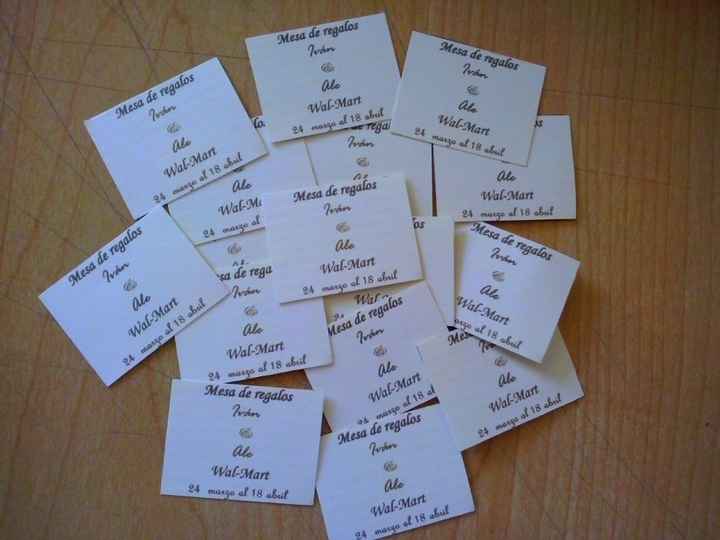 Mesa de regalos
Iván
&
Ale
Wal-Mart
24 marzo al 18 abril
Mesa de regalos
Iván
&
Ale
Wal-Mart
24 marzo al 18 abril
Mesa de regalos
Iván
&
Ale
Wal-Mart
24 marzo al 18 abril
Ale
24 marzo al
Iván
&
Ale
Wal-Mart
24 marzo al 18 abril
Mesa de regalos
Iván
&
Ale
Wal-Mart
24 marzo al 18 abril
Mesa de regalos
Iván
&
Ale
Wal-Mart
24 marzo al 18 abril
&
de
Iván
&
Ale
Wal-Mart
24 marzo al 18 abril
Mesa de regalos
Iván
&
Ale
Wal-Mart
24 marzo al 18 abril
Mesa de regalos
Iván
&
Ale
Wal-Mart
24 marzo al 18
&
Ale
Wal-Mart
24 marzo al 18 abril
Mesa de regalos
Iván
&
Ale
Wal-Mart
24 marzo al 18 abril
Mesa de regalos
Iván
&
Ale
Wal-Mart
24 marzo al 18 abril